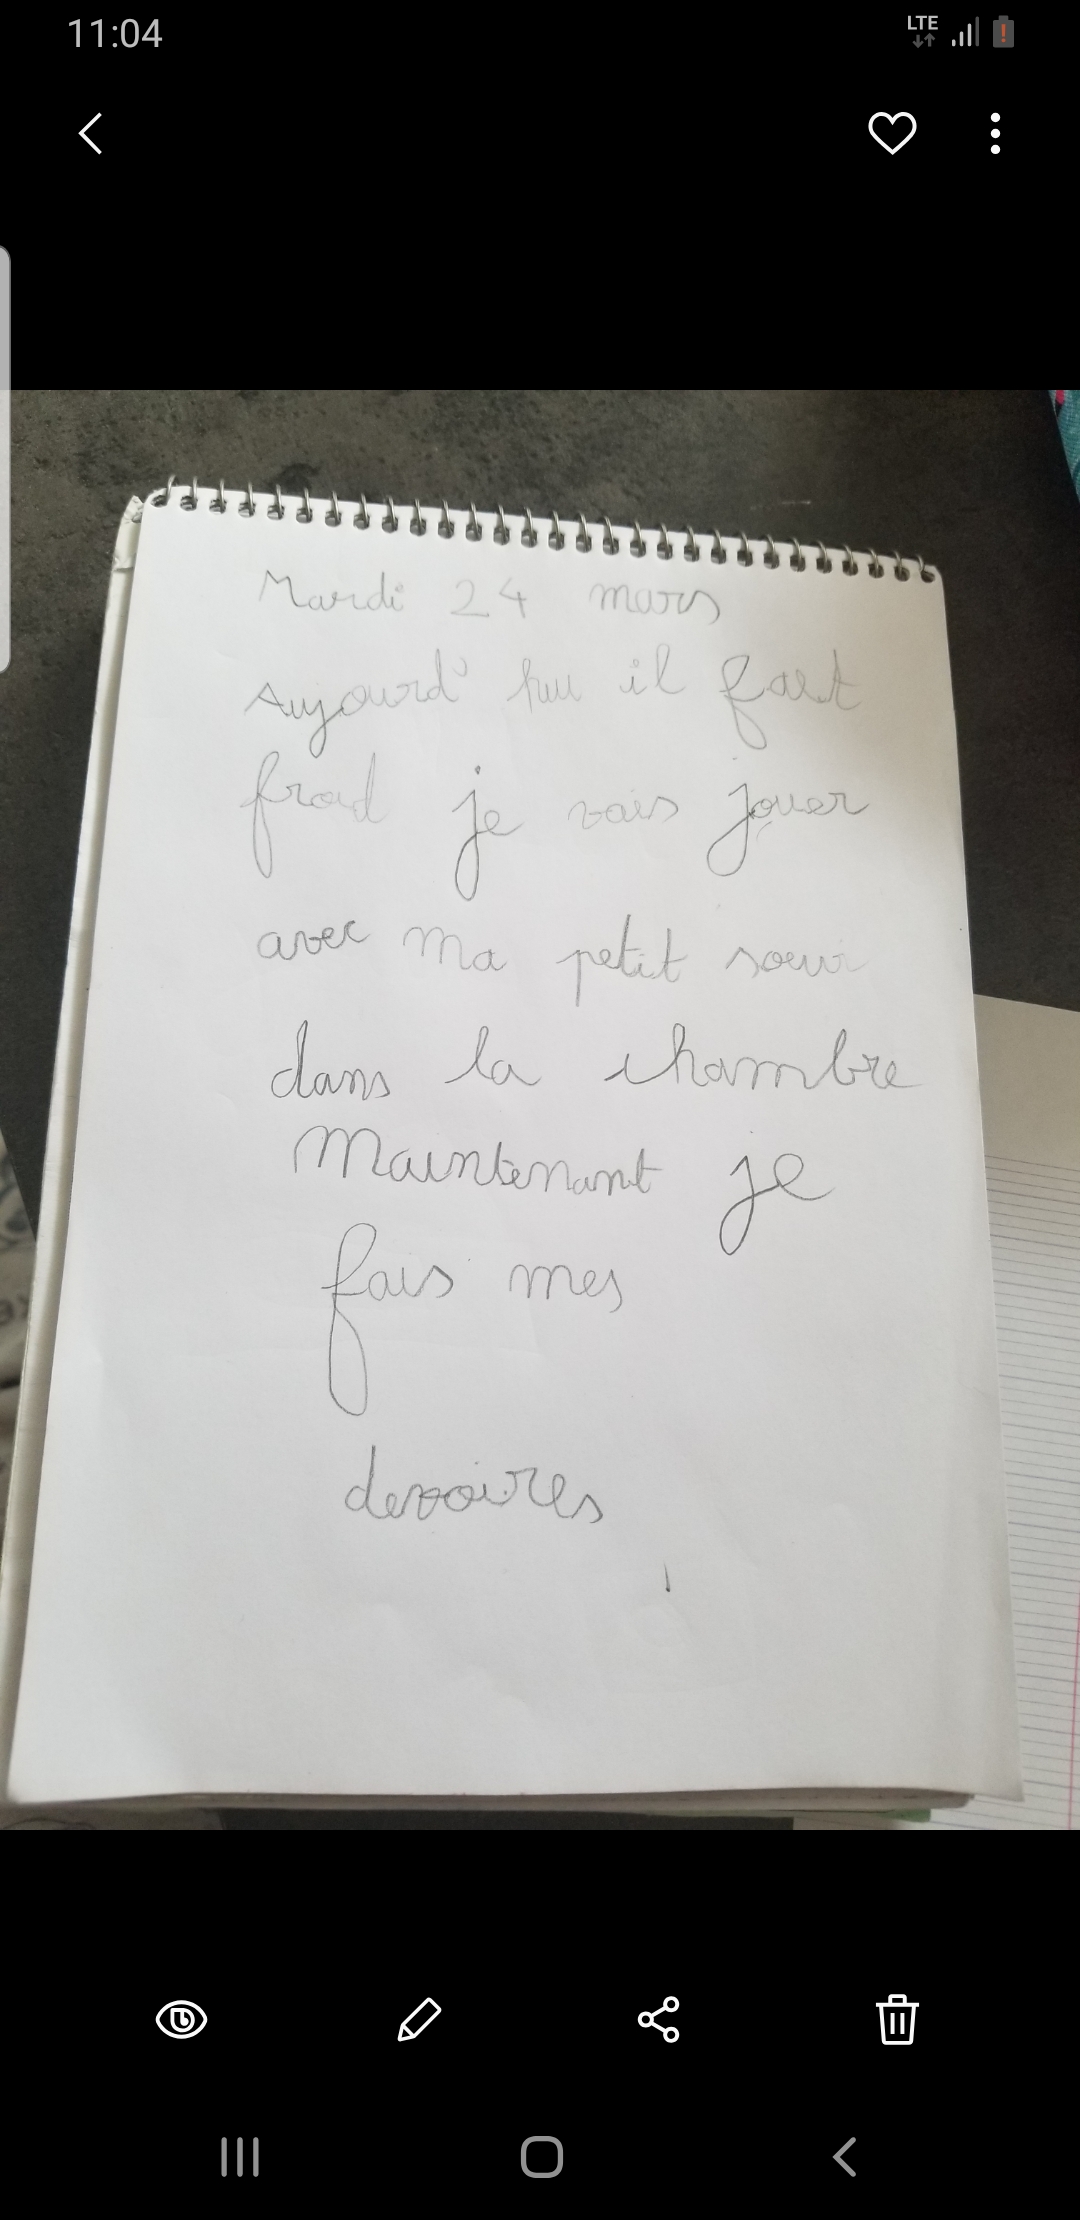 11:04
LTE
Mardi 24 mars
Aujourd'hui il fait
froid je vais jouer
avec ma petit soeur
dans la chambre
Maintenant je
fais mes
devoires